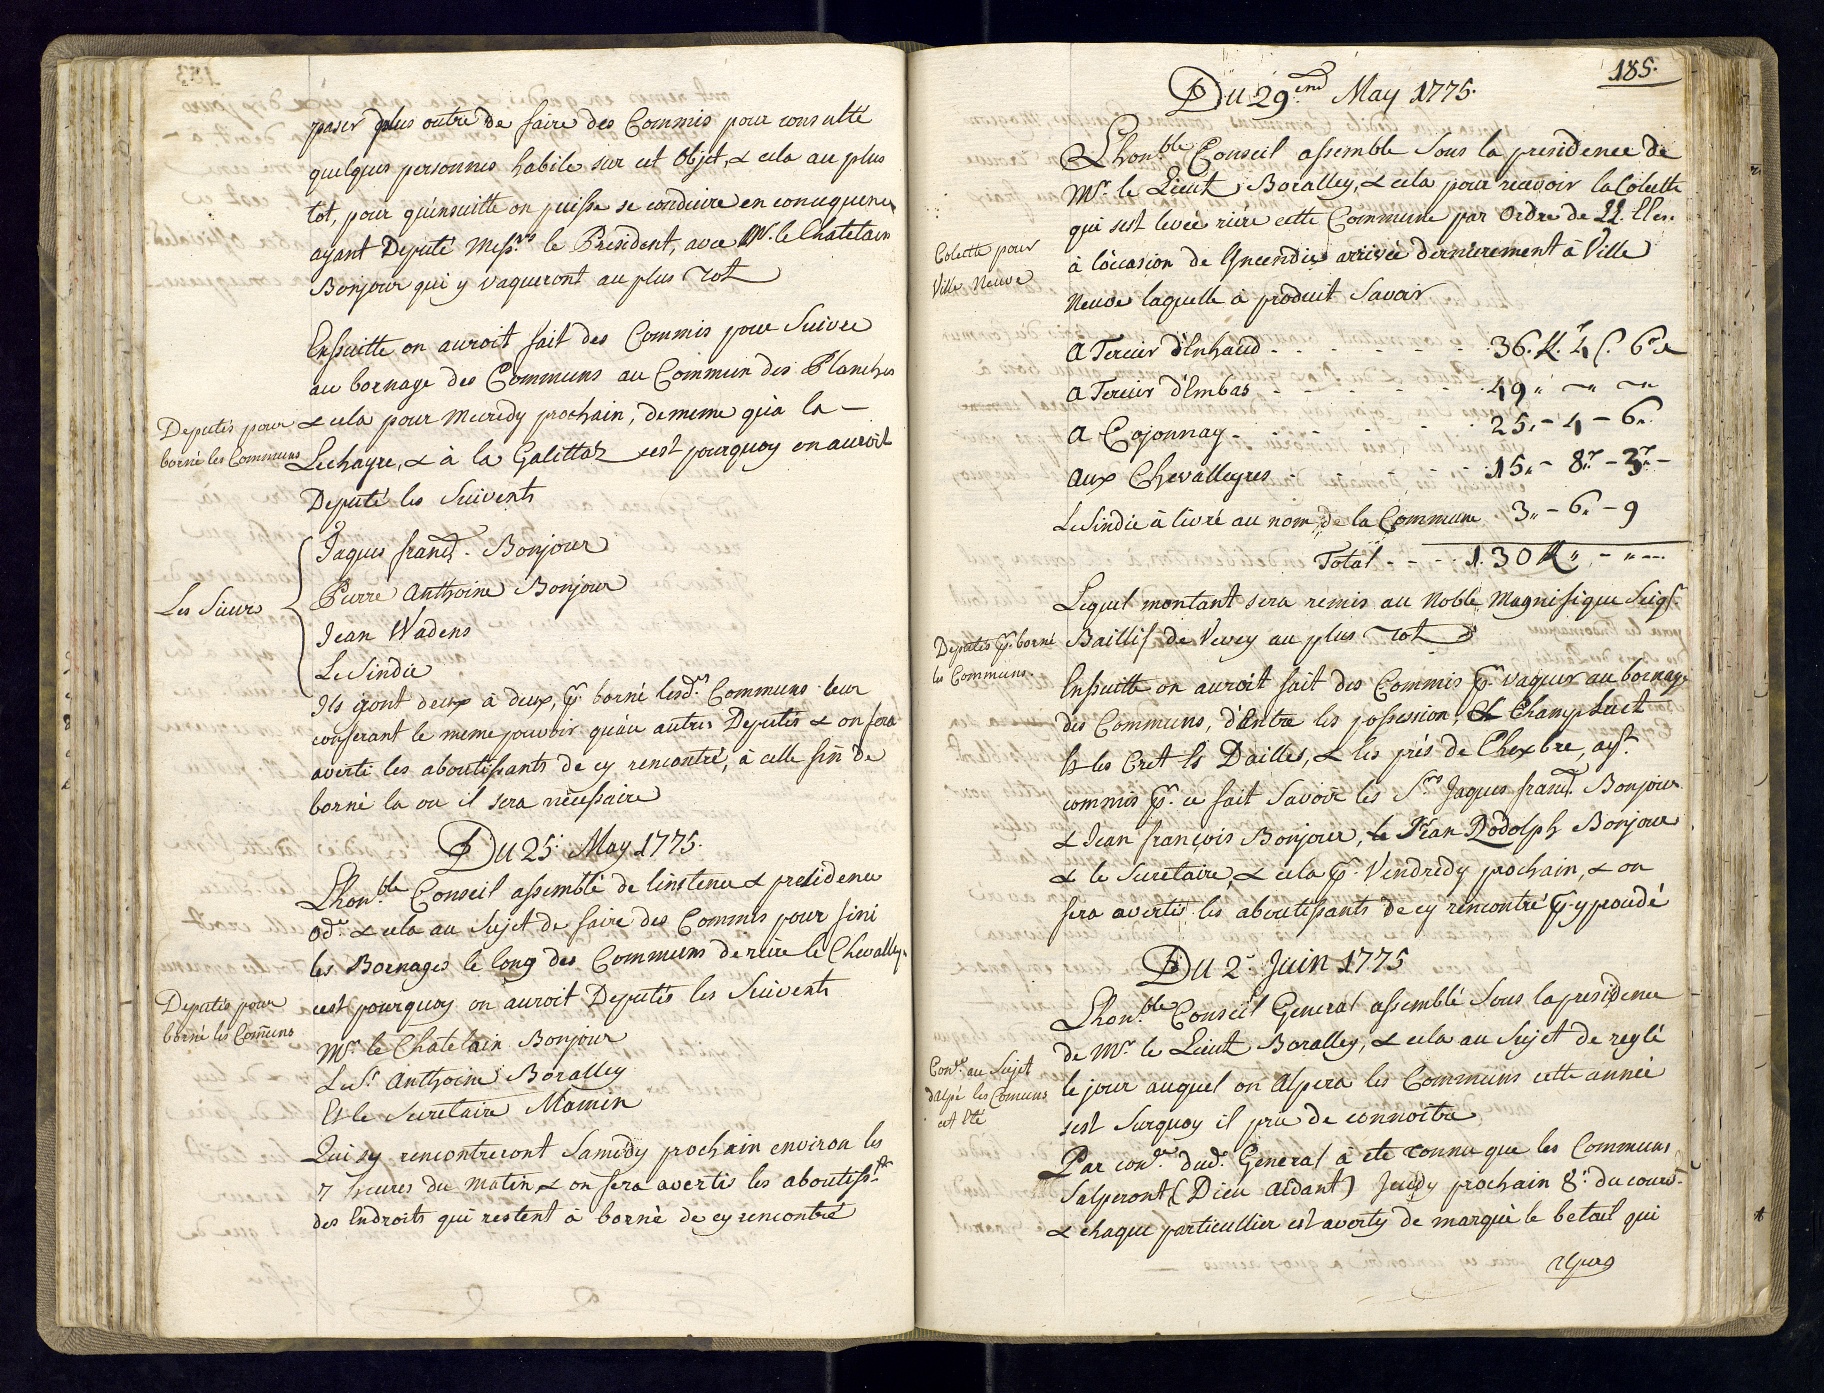 paser plus outre de faire des Commis pour consulte
quelques personnes habile sur cet Objet, & cela au plus
tot, pour qu'ensuitte on puisse se conduire en consequence
ayant Deputé Mess.rs le President, avec Mr. le Chatelain
Bonjour qui y vaqueront au plus Tot
Ensuitte on auroit fait des Commis pour Suivre
au bornage des Communs au Commun des Planches
Deputés pour
borné les Communs
& cela pour Mecredy prochain, de meme qu'a la
Lechayre, & à la Galittaz cest pourquoy on auroit
Deputé les Suivents
Les Sieurs
Jaques franç. Bonjour
Pierre Anthoine Bonjour
Jean Wadens
Le Sindic
Ils iront deux à deux, pr. borné lesd.ts Communs leur
conferant le meme pouvoir qu'au autres Deputés & on fera
averti les aboutissants de cy rencontré, à celle fin de
borné la ou il sera nécessaire
Du 25. May 1775.
Lhon.ble Conseil assemblé de linstence & presidence
od.t & cela au Sujet de faire des Commis pour fini
les Bornages le long des Communs de riere le Chevalley
Deputés pour
borné les Communs
cest pourquoy on auroit Deputés les Suivents
Mr. le Chatelain Bonjour
Le Sr. Anthoine Boralley
Et le Secretaire Mamin
Qui sy rencontreront Samedy prochain environ les
7 heures du matin & on fera avertis les aboutiss.ts
des Endroits qui restent à borné de cy rencontré
185.
Du 29. May 1775.
Lhon.ble Conseil assemble Sous la presidence de
Mr. le Lieut. Boralley, & cela pour recevoir la Colette
qui sest levée riére cette Commune par Ordre de LL. EEes.
Colette pour
Ville Neuve
à l'óccasion de Yncendies arrivée derniérement à Ville
Neuve laquelle à produit Savoir
A Tercier d'Enhaud - - - - - 36. ll. 4 s. 6 d
A Tercier d'Embas - - - - - 49 " ~ " ~ "
A Cojonnay - - - - - 25. - 4 - 6.
Aux Chevalleyres - - - - - 15. - 8. - 3. -
Le Sindic à livré au nom de la Commune 3. - 6. - 9
Total - - - 130 ll " - " -
Lequel montant sera remis au Noble Magnifique Seigr.
Baillif de Vevey au plus Tot
Deputés pr. borné
les Communs
Ensuitte on auroit fait des Commis pr. vaquer au bornage
des Communs, d'Entre les possession, de Champ
& les Cret ls Dailles, & les prés de Chexbre, ayt.
commis pr. ce fait Savoir les Srs Jaques franç. Bonjour
& Jean françois Bonjour, le Jean Rodolph Bonjour
& le Secretaire, & cela pr. Vendredy prochain, & on
fera avertis les aboutissants de cy rencontré pr. y procedé
Du 2. Juin 1775
Lhon.ble Conseil General assemblé Sous la presidence
de Mr. le Lieut Boralley, & cela au Sujet de reglé
Con.ce au Sujet
dalpé les Comuns
cet Eté
le jour auquel on Alpera les Communs cette année
sest Surquoy il prie de connoitre
Par con.ce dud.t General à ete connu que les Communs
Salperont (Dieu aidant) Jeudy prochain 8. du cour.t
& chaque particullier est averty de marqué le betail qui